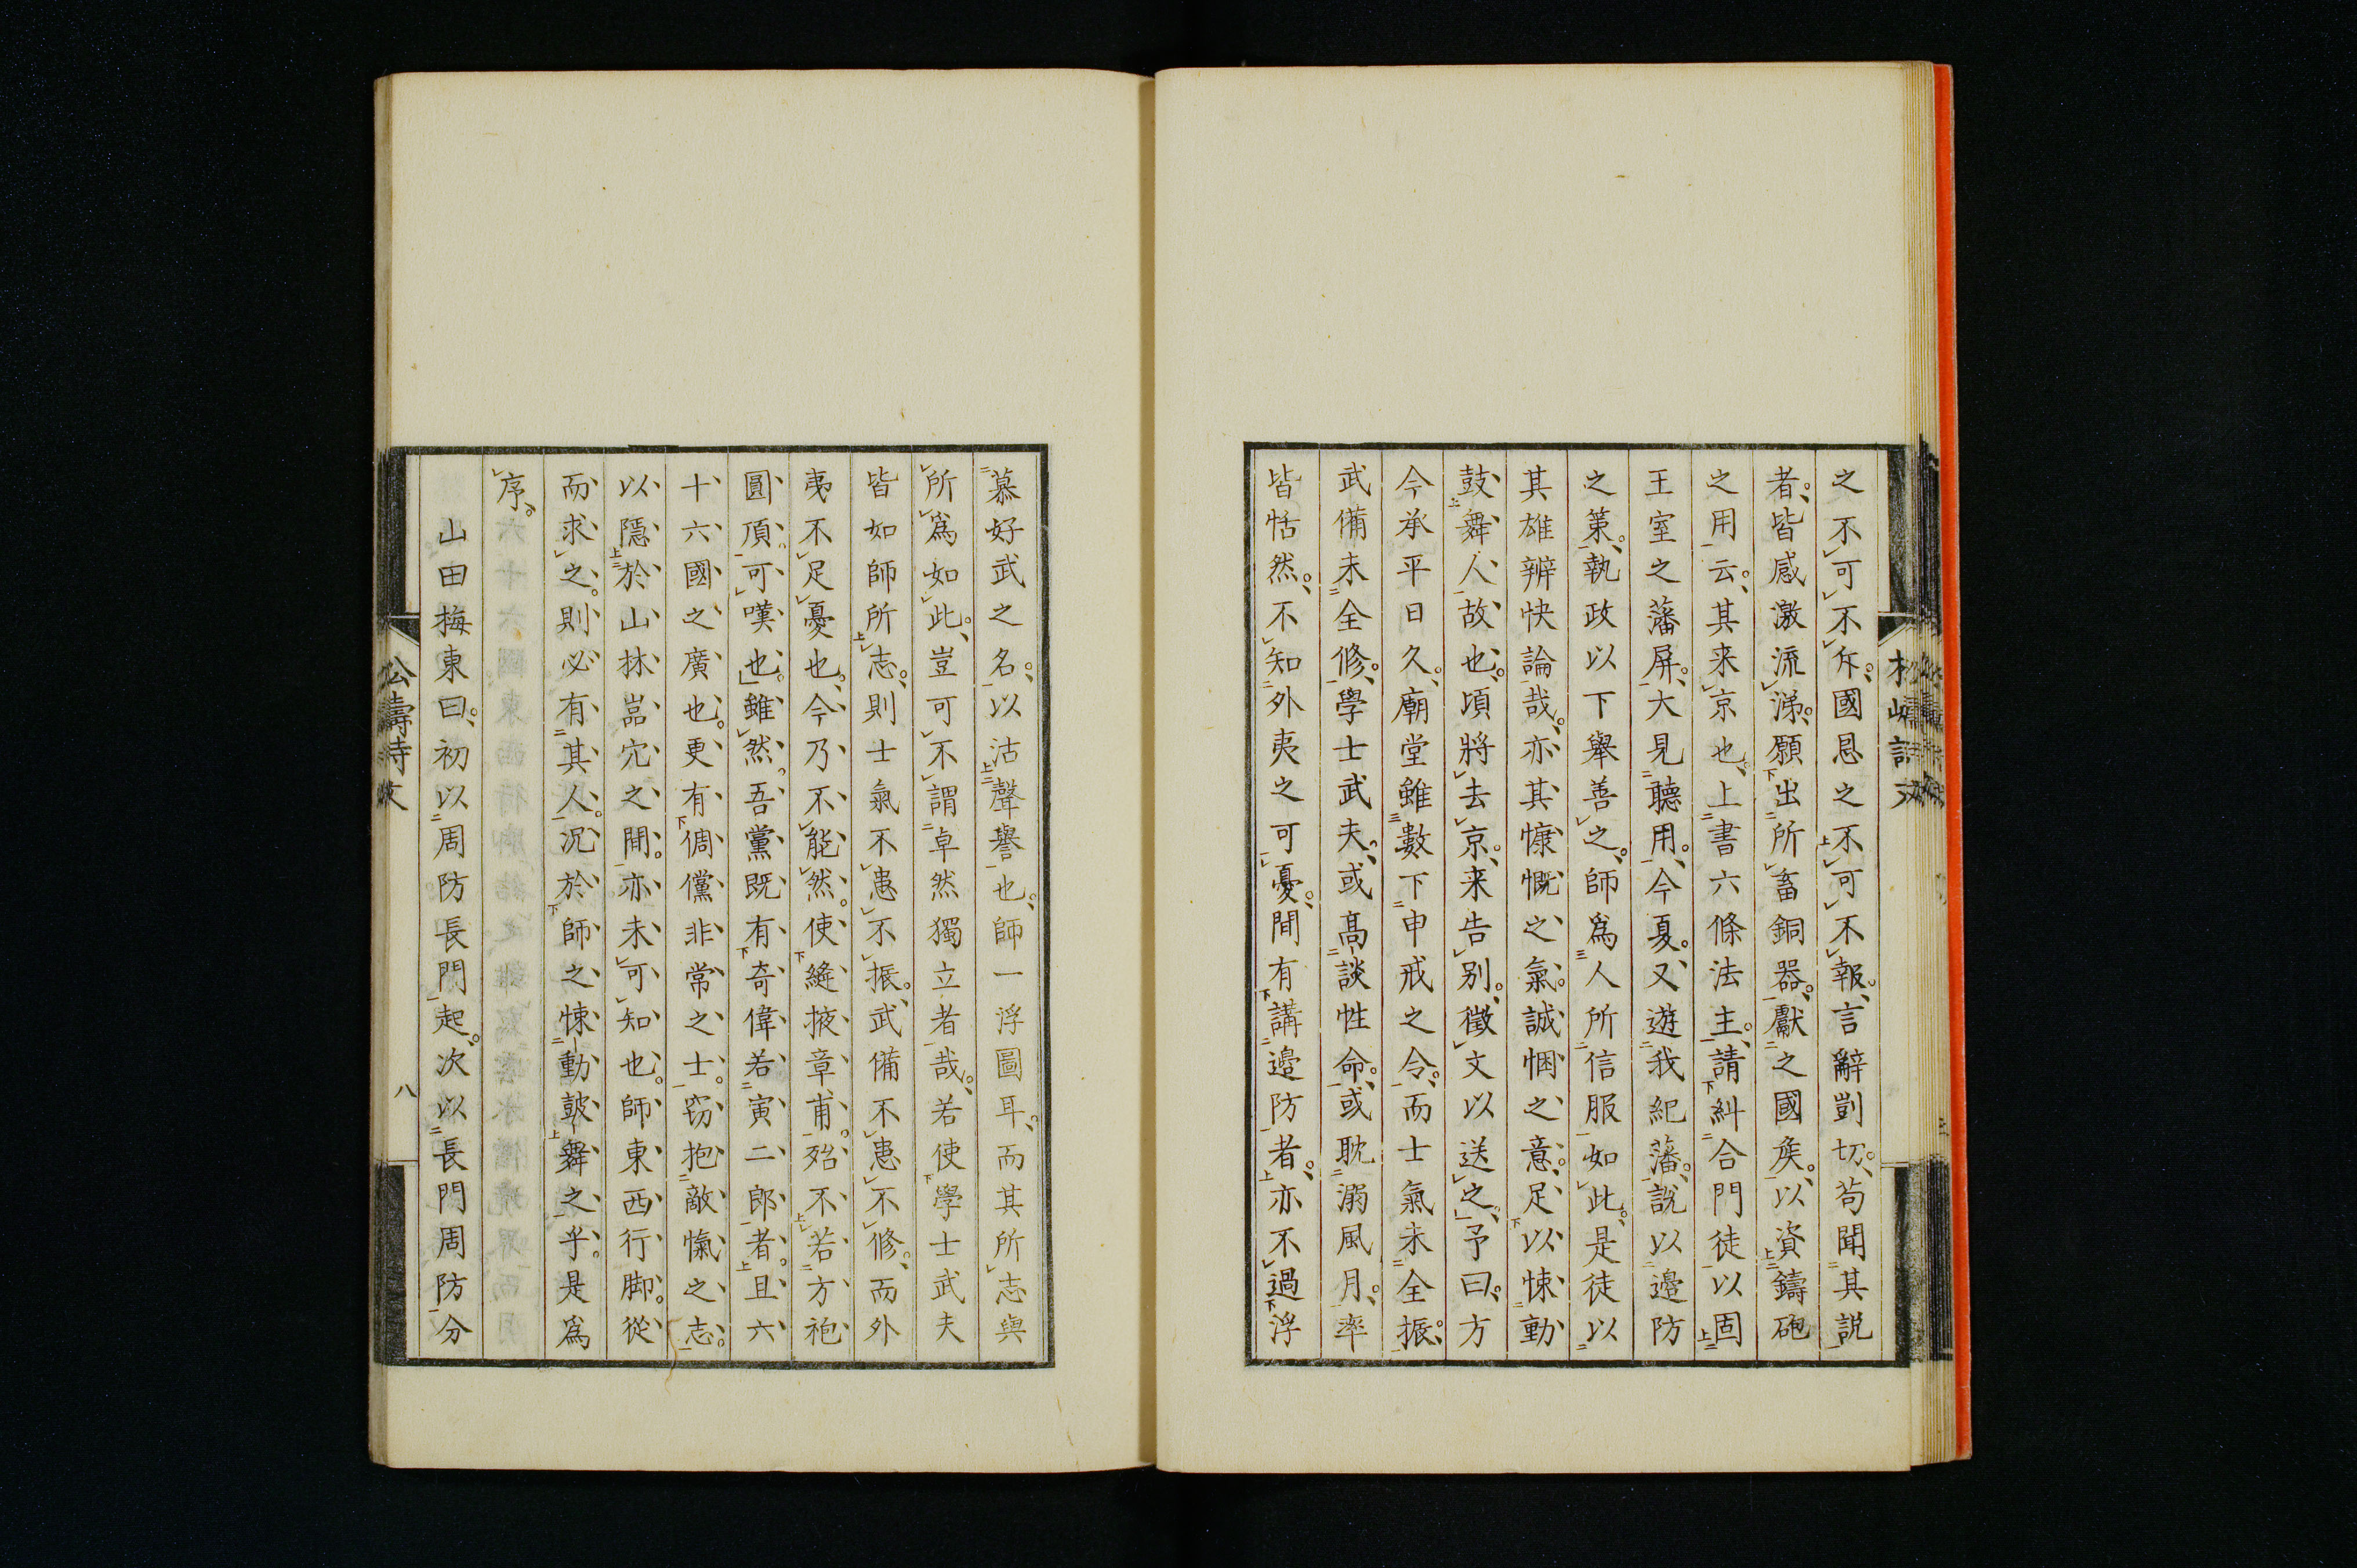 之不可不斥國恩之不可不報言辭剴切苟聞其説
者皆感激流涕願出所畜銅器獻之國矦以資鑄砲
之用云其来京也上書六條法主請糾合門徒以固
王室之藩屏大見聽用今夏又遊我紀藩説以邊防
之策執政以下舉善之師爲人所信服如此是徒以
其雄辨快論哉亦其慷慨之氣誠悃之意足以悚動
鼓舞人故也頃將去京来告别徵文以送之予曰方
今承平日久廟堂雖數下申戒之令而士氣未全振
武備未全修學士武夫或高談性命或耽溺風月率
皆恬然不知外夷之可憂間有講邊防者亦不過浮
慕好武之名以沽聲譽也師一浮圖耳而其所志與
所爲如此豈可不謂卓然獨立者哉若使學士武夫
皆如師所志則士氣不患不振武備不患不修而外
夷不足憂也今乃不能然使縫掖章甫殆不若方袍
圓頂可嘆也雖然吾黨既有奇偉若寅二郎者且六
十六國之廣也更有倜儻非常之士窃抱敵愾之志
以隱於山林嵓穴之間亦未可知也師東西行脚從
而求之則必有其人况於師之悚動鼓舞之乎是爲
序
山田梅東曰初以周防長門起次以長門周防分
八